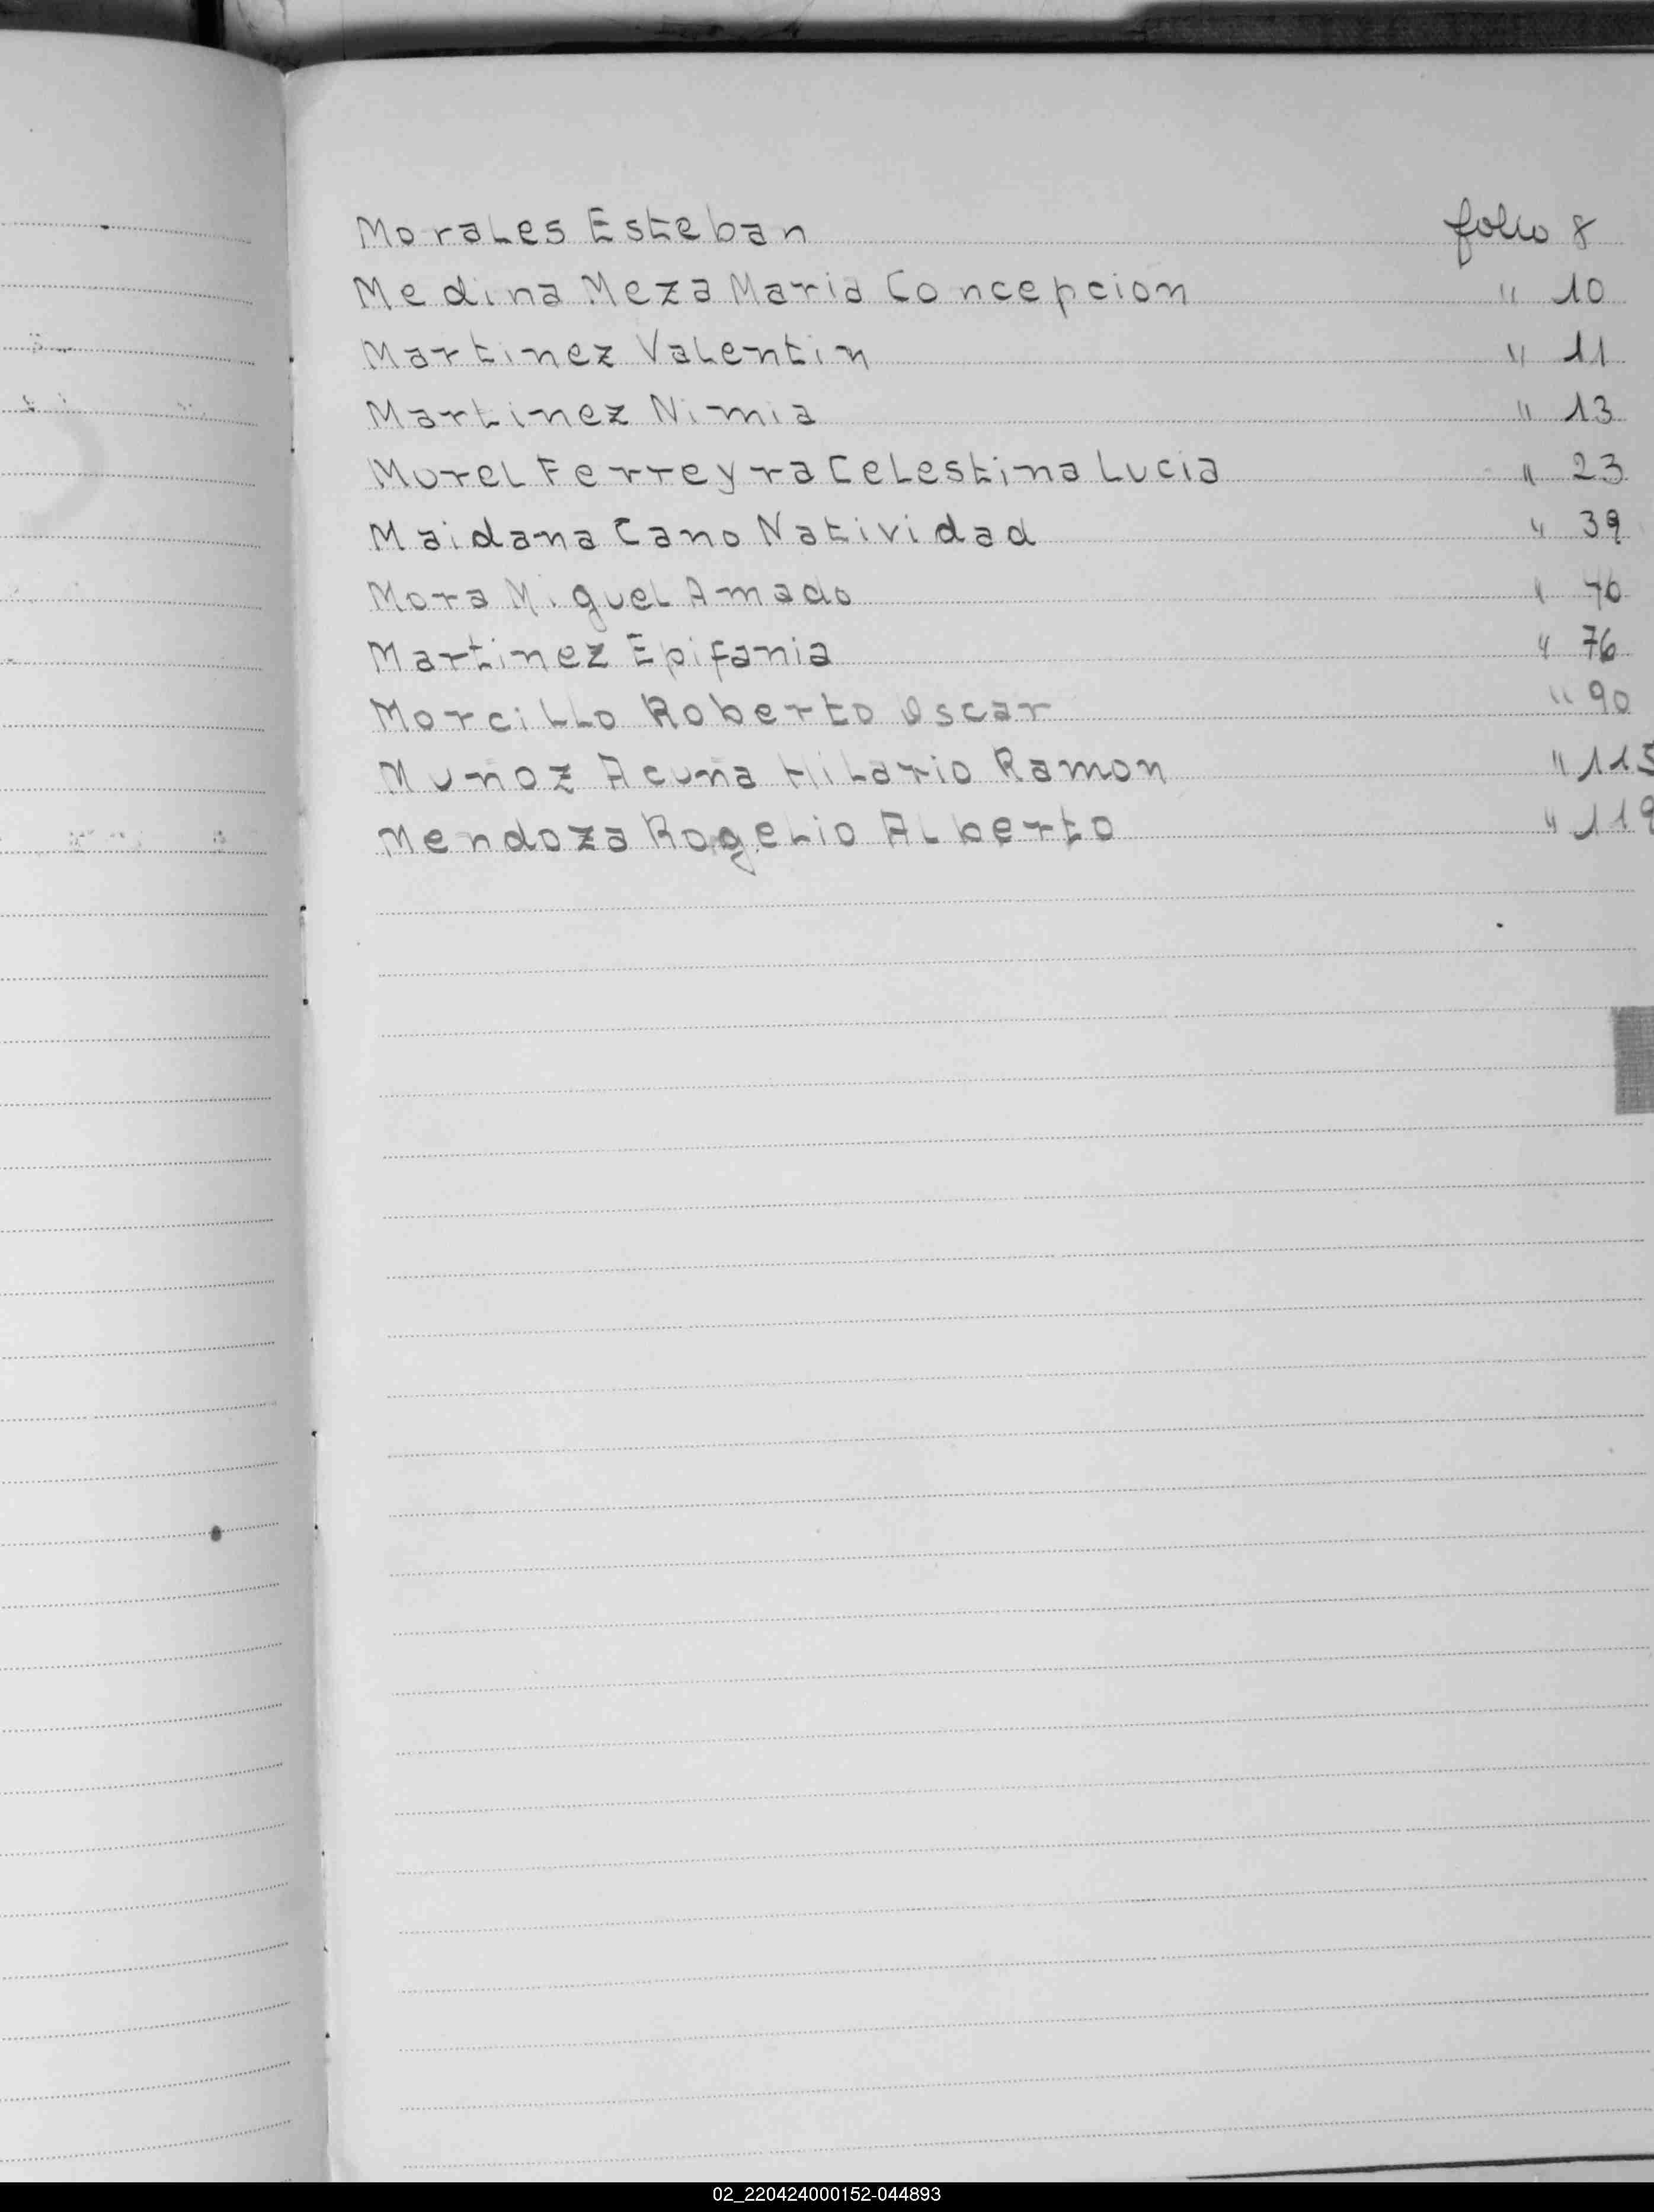 Morales Esteban folio 8
Medina Meza Maria Concepcion " 10
Martinez Valentin " 11
Martinez Nimia " 13
Morel Ferreyra Celestina Lucia " 23
Maidana Cano Natividad " 39
Mora Miguel Amado " 70
Martinez Epifania " 76
Morcillo Roberto Oscar " 90
Muñoz Acuña Hilario Ramon " 115
Mendoza Rogelio Alberto " 119
02_220424000152-044893